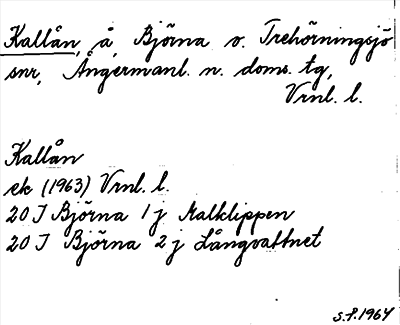 Kallån, å, Björna o. Trehörningsjö
snr, Ångermanl. n. doms. tg,
Vrnl. l.
Kallån
ek (1963) Vrnl. l.
20 I Björna 1 j Malklippen
20 I Björna 2 j Långvattnet
S.P. 1964